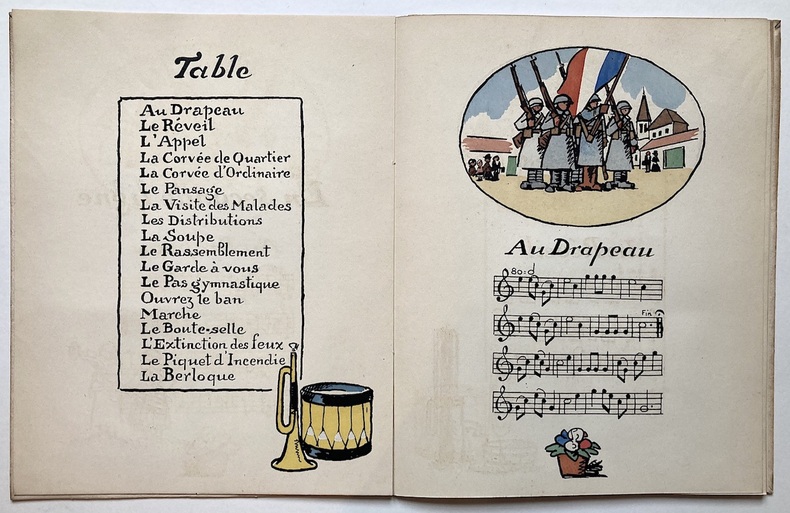 Table
Au Drapeau
Le Réveil
L'Appel
La Corvée de Quartier
La Corvée d'Ordinaire
Le Pansage
La Visite des Malades
Les Distributions
La Soupe
Le Rassemblement
Le Garde à vous
Le Pas gymnastique
Ouvrez le ban
Marche
Le Boute-selle
L'Extinction des feux
Le Piquet d'Incendie
La Berloque
Au Drapeau
Fin